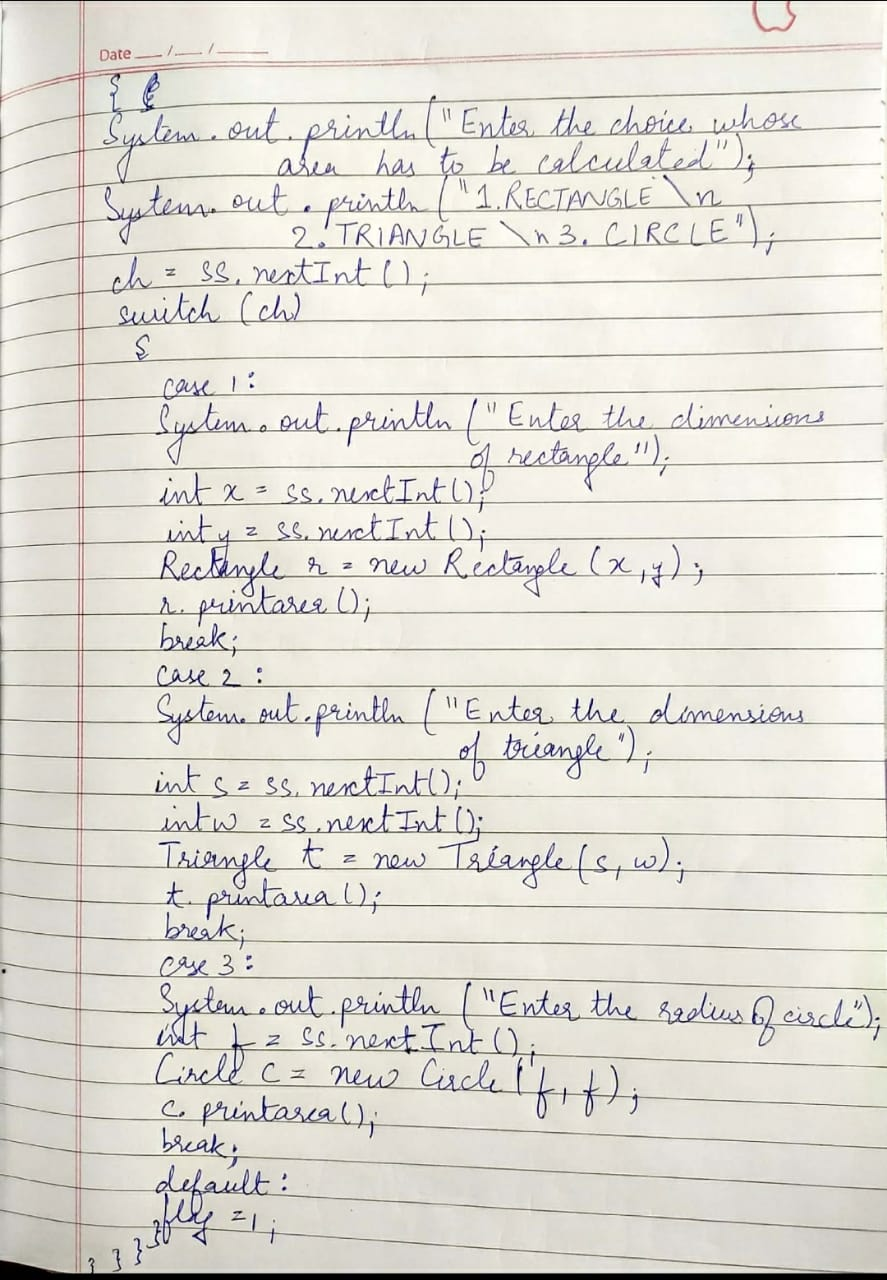 Date __/__/____
{
System.out.println("Enter the choice whose
area has to be calculated");
System.out.println("1.RECTANGLE \n
2. TRIANGLE \n3. CIRCLE");
ch = ss.nextInt();
switch (ch)
{
case 1:
System.out.println("Enter the dimensions
of rectangle");
int x = ss.nextInt();
int y = ss.nextInt();
Rectangle r = new Rectangle(x,y);
r.printarea();
break;
case 2:
System.out.println("Enter the dimensions
of triangle");
int s = ss.nextInt();
int w = ss.nextInt();
Triangle t = new Triangle(s, w);
t.printarea();
break;
case 3:
System.out.println("Enter the radius of circle");
int f = ss.nextInt();
Circle c = new Circle(f, f);
c.printarea();
break;
default:
flag =1;
} } } }